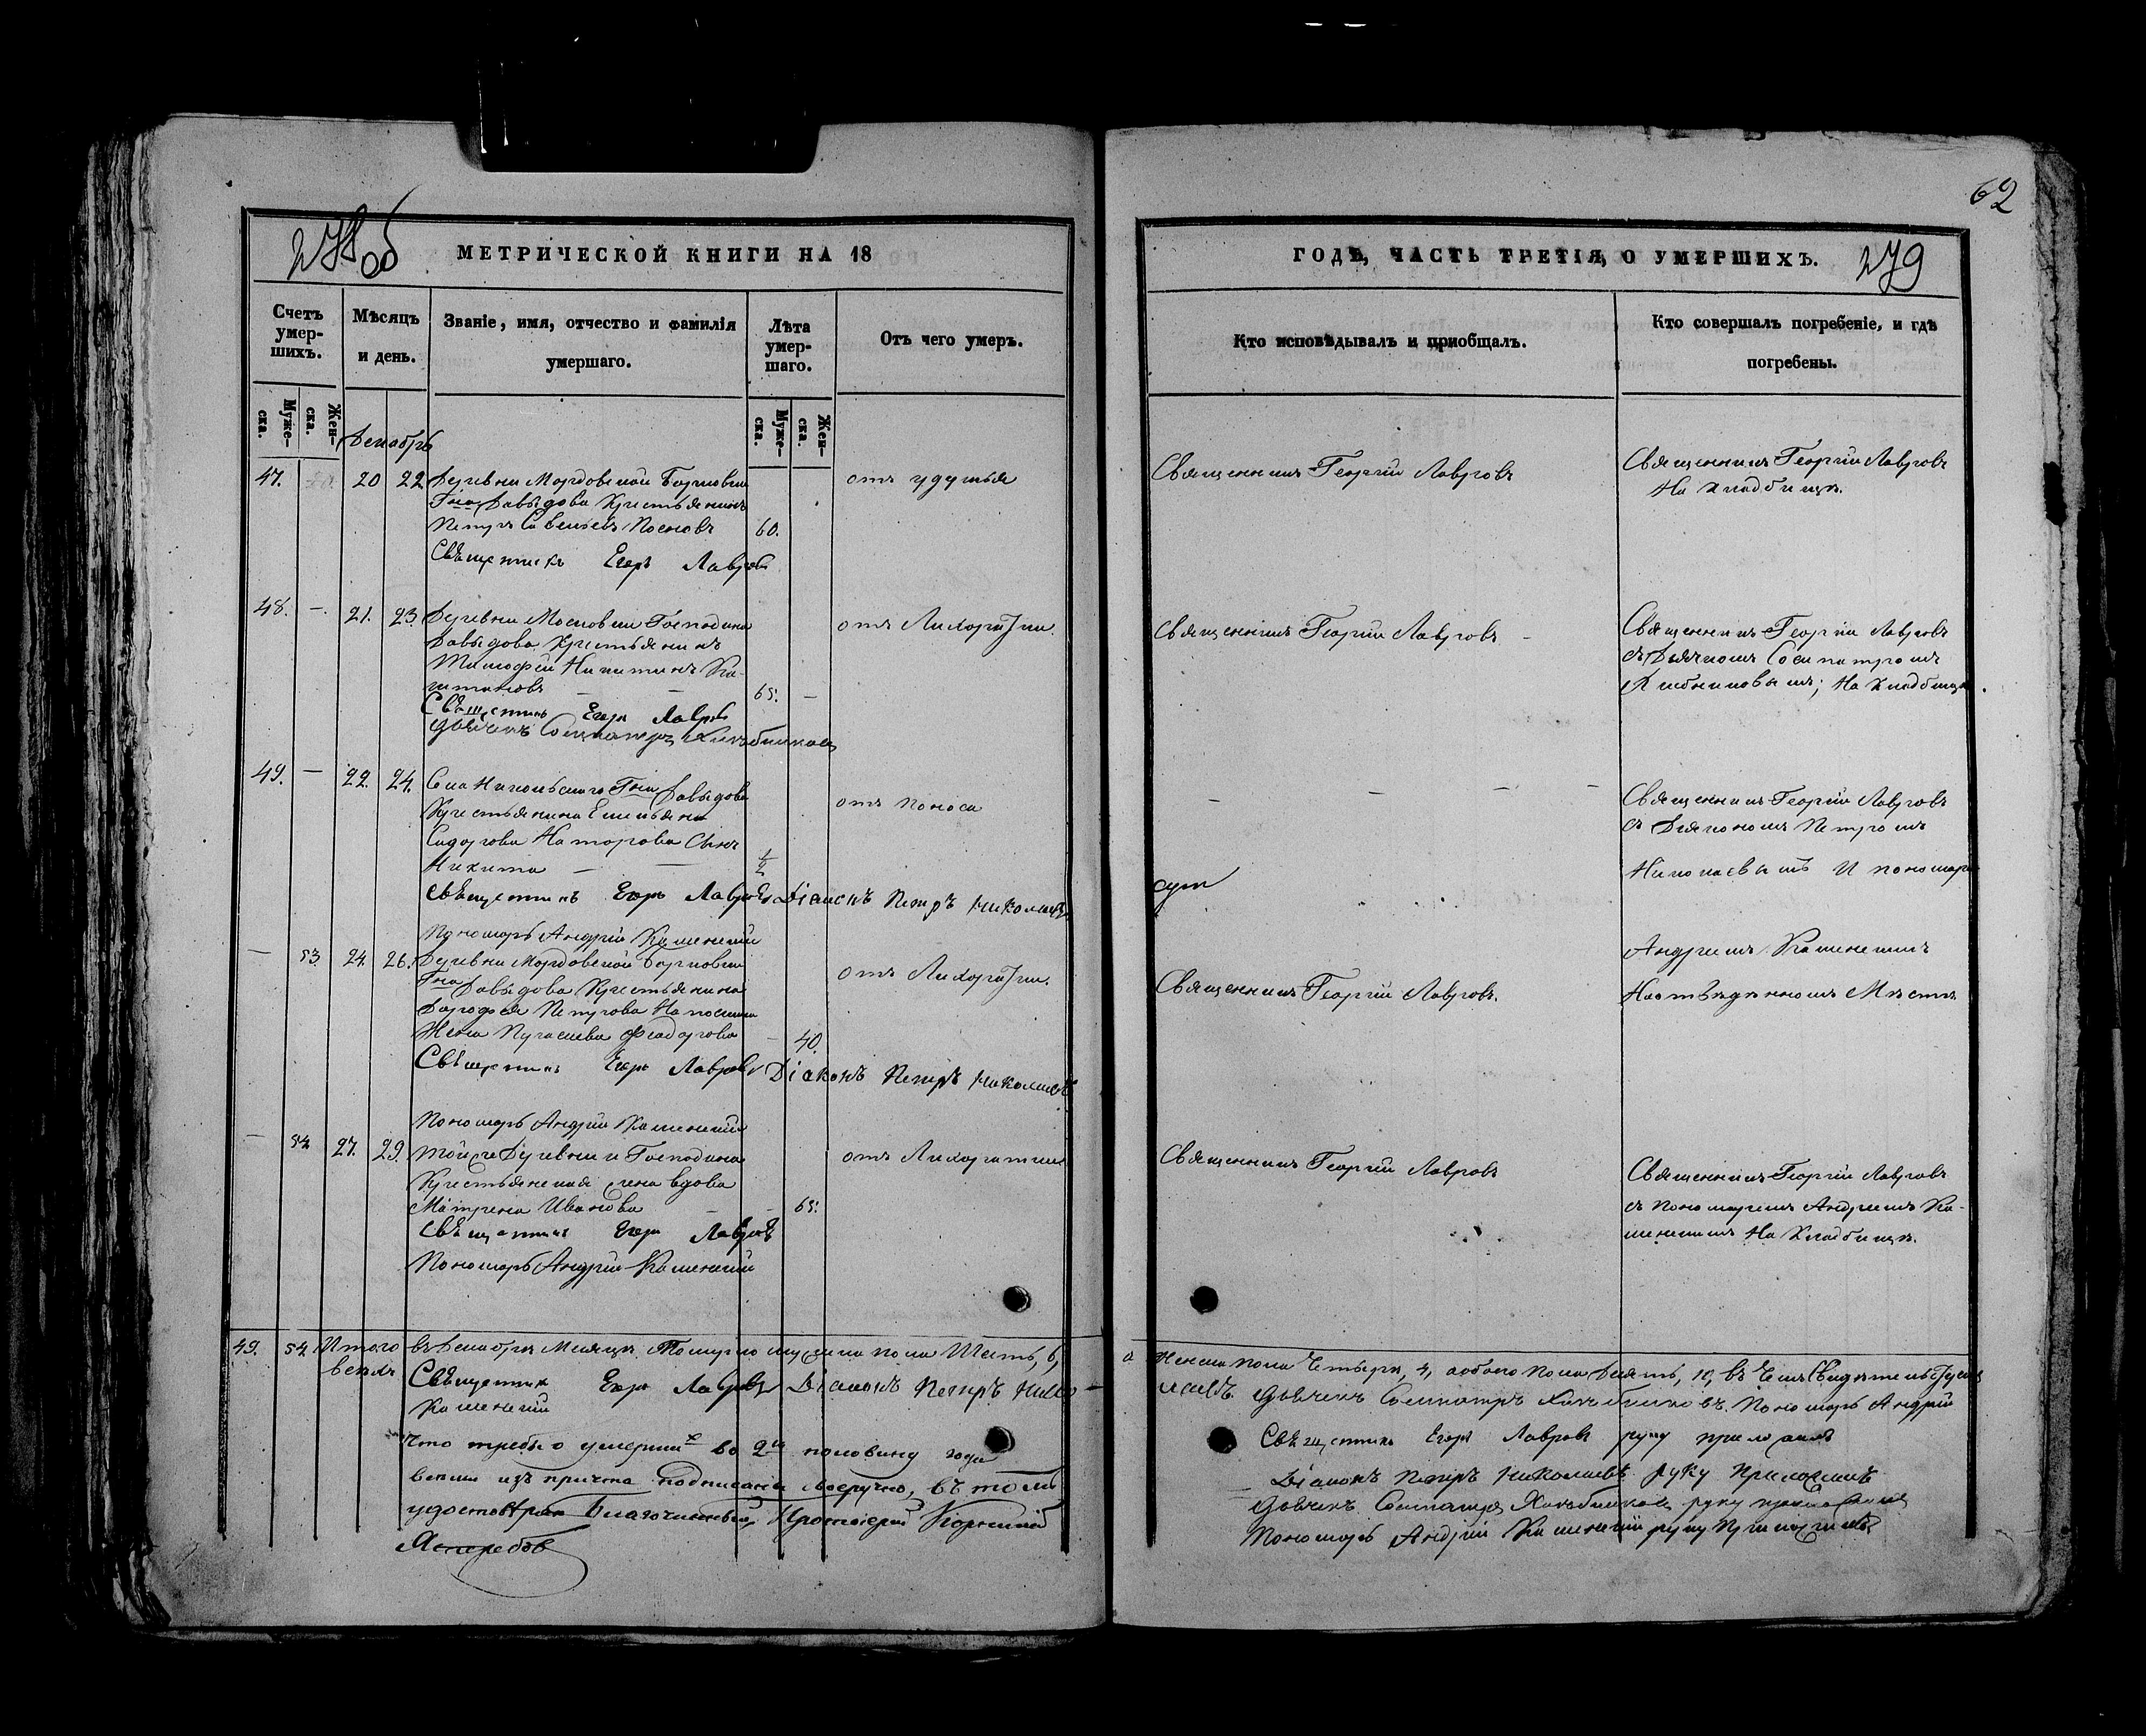 62
278 об
МЕТРИЧЕСКОЙ КНИГИ НА 18
Счетъ умер-шихъ.
Мѣсяцъ и день.
Званіе, имя, отчество и фамилія умершаго.
Лѣта умер-шаго.
Отъ чего умеръ.
Муже-ска.
Жен-ска.
Муже-ска.
Жен-ска.
Декабрь
47. 20 22 Деревни Мордовской Борковки
Гна Давыдова Крестьянинъ
Петръ Савельевъ 60.
отъ удушья
Священникъ Егоръ Лавровъ
48. — 21. 23. Деревни Московки Господина
Давыдова Крестьянинъ
Тимофей Никитинъ Ка-
питановъ — — 65. —
отъ Лихорадки.
Священникъ Егоръ Лавровъ
Дьячекъ Сосипатръ Хлѣбниковъ
49. — 22. 24. Села Никольскаго Гна Давыдова
Крестьянина Емельяна
Сидорова сынъ
Никита — — 1/2
отъ поноса
Священникъ Егоръ Лавровъ Діаконъ Петръ Николаевъ
Пономарь Андрей Каменскій
— 53. 24. 26. Деревни Мордовской Борковки
Гна Давыдова Крестьянина
Дорофея Петрова
Жена Федорова — 40.
отъ Лихорадки.
Священникъ Егоръ Лавровъ Діаконъ Петръ Николаевъ
Пономарь Андрей Каменскій
— 54 27. 29. той же Деревни и Господина
Крестьянская жена вдова
Матрена Иванова — — 65.
отъ Лихорадки
Священникъ Егоръ Лавровъ
Пономарь Андрей Каменскій
49. 54 Итого въ Декабрѣ Месяцѣ Померло мужеска пола Шесть, 6,
Священникъ Егоръ Лавровъ Діаконъ Петръ Нико-
Каменскій
Что требы о умершихъ во 2й половину года
всеми изъ причта подписаны своеручно, въ томъ
удостовѣряю Благочинный, Протоіерей
Ястребовъ
ГОДѢ, ЧАСТЬ ТРЕТІЯ, О УМЕРШИХЪ.
279
Кто исповѣдывалъ и приобщалъ.
Кто совершалъ погребеніе, и гдѣ погребены.
Священникъ Георгій Лавровъ
Священникъ Георгій Лавровъ
На кладбищѣ.
Священникъ Георгій Лавровъ —
Священникъ Георгій Лавровъ
съ Дьячкомъ Сосипатромъ
Хлѣбниковымъ; На кладбищѣ.
— — — —
Священникъ Георгій Лавровъ
съ Діякономъ Петромъ
Николаевымъ И пономаремъ
Андреемъ Каменскимъ
На отведенномъ Мѣстѣ
Священникъ Георгій Лавровъ.
Священникъ Георгій Лавровъ
Священникъ Георгій Лавровъ
съ пономаремъ Андреемъ Ка-
менскимъ На Кладбищѣ.
а Женска пола Четыре, 4, а обоего пола Десять, 10, въ чемъ Свидѣтельствуемъ
лаевъ Дьячекъ Сосипатръ Хлѣбниковъ. Пономарь Андрей
Священникъ Егоръ Лавровъ руку приложилъ
Діаконъ Петръ Николаевъ руку Приложилъ
Дьячекъ Сосипатръ Хлѣбниковъ руку приложилъ
Пономарь Андрей Каменскій руку Приложилъ